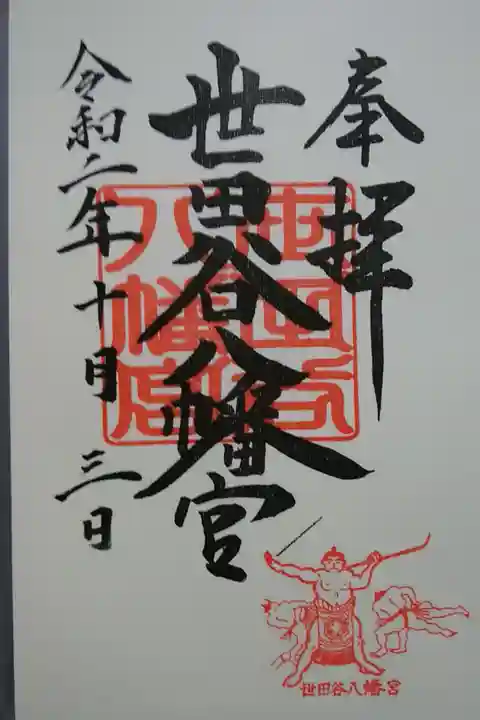 奉拝
世田谷八幡宮
世田谷八幡宮
令和二年十月三日
世田谷八幡宮